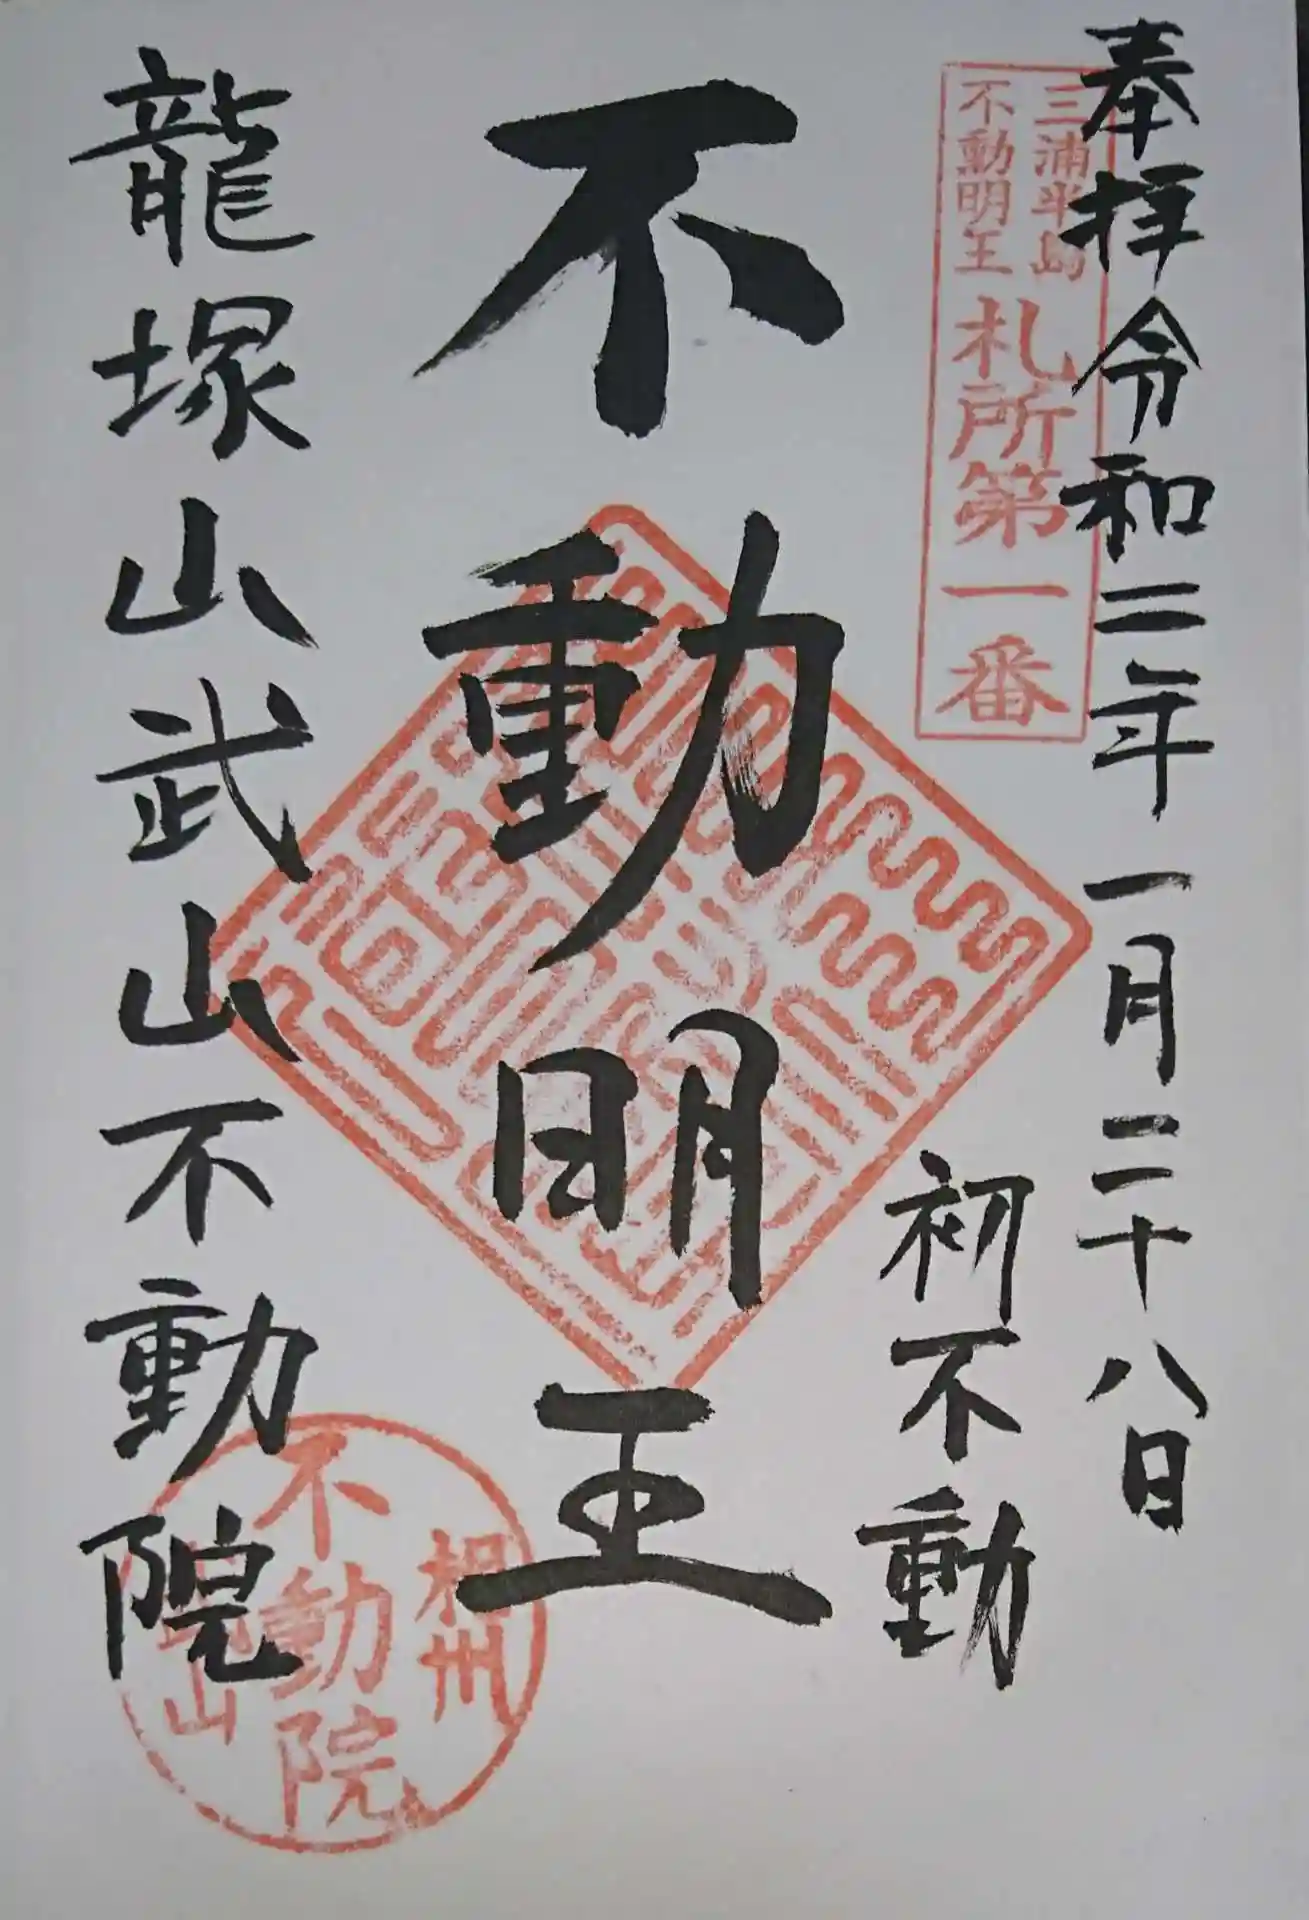 奉拝令和二年一月二十八日
三浦半島
不動明王
札所第一番
初不動
不動明王
龍塚山武山不動院
相州
不動院
武山